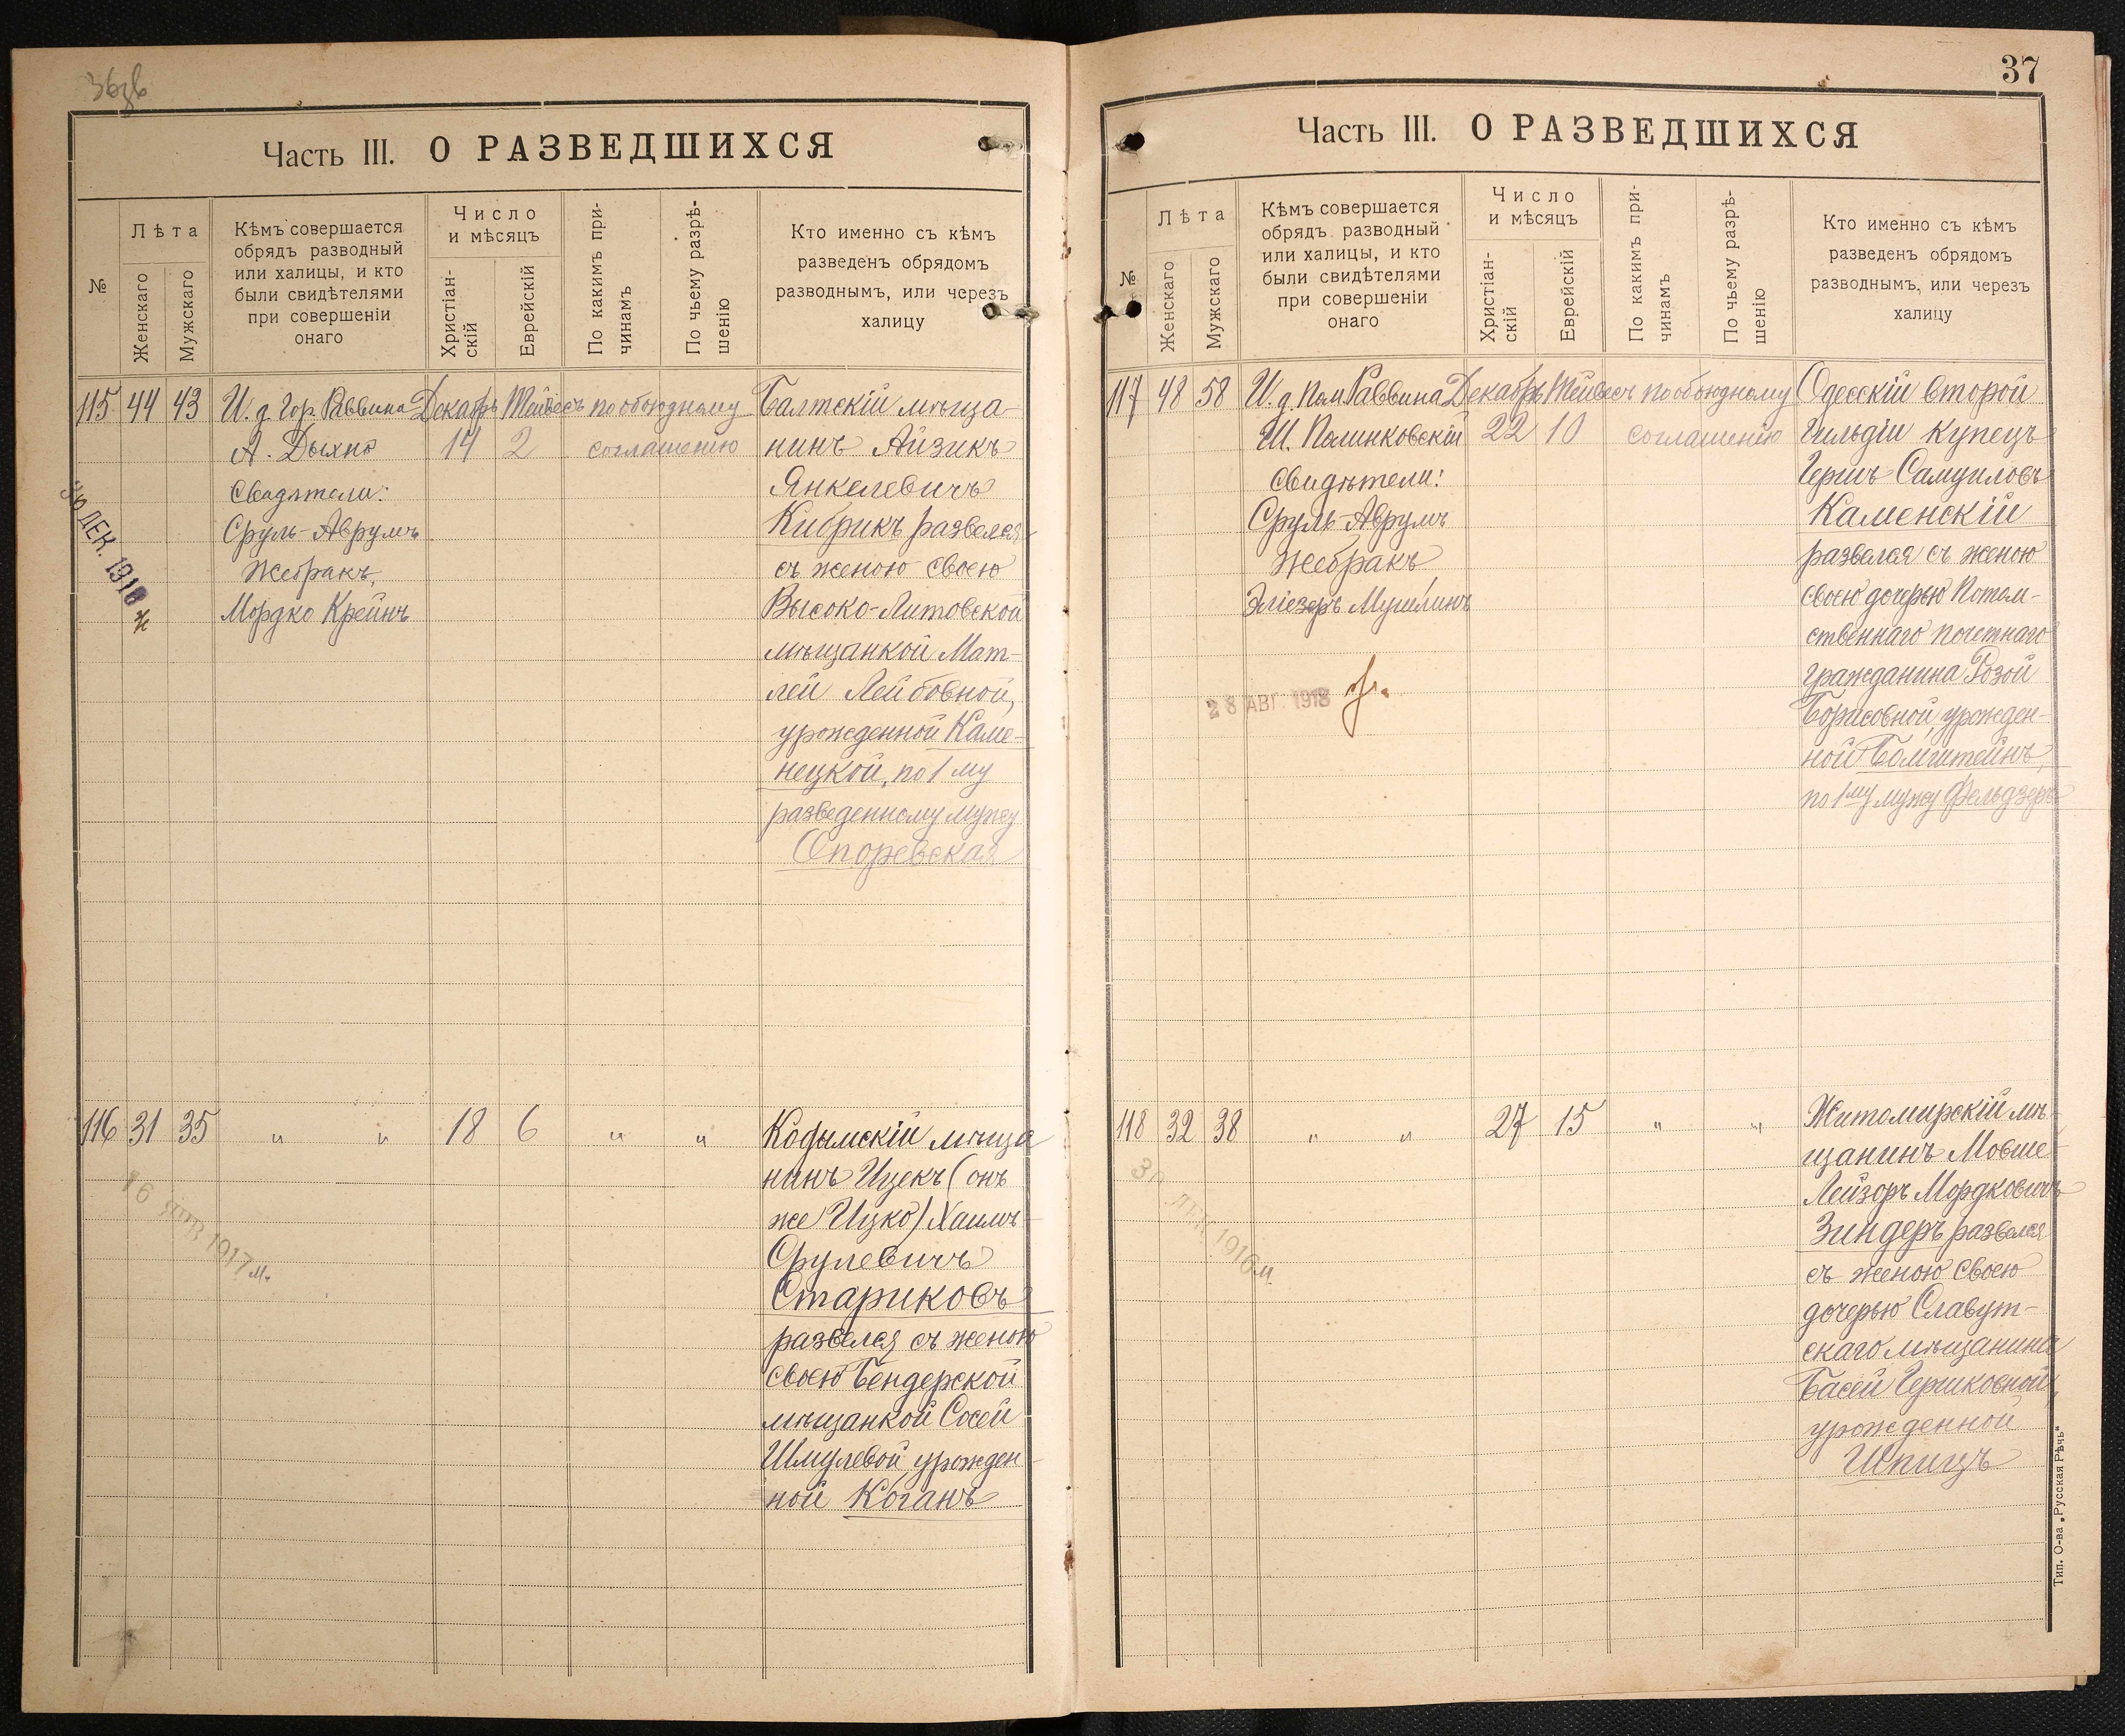 36об
Часть III. О РАЗВЕДШИХСЯ
№
Лѣта
Женскаго
Мужскаго
Кѣмъ совершается
обрядъ разводный
или халицы, и кто
были свидѣтелями
при совершеніи
онаго
Число
и мѣсяцъ
Христіан-
скій
Еврейскій
По какимъ при-
чинамъ
По чьему разрѣ-
шенію
Кто именно съ кѣмъ
разведенъ обрядомъ
разводнымъ, или черезъ
халицу
115 44 43 И. д. Гор. Раввина Декабрь Тейвесъ по обоюдному
А. Дыхно 14 2 соглашению
Свидѣтели:
Сруль-Аврумъ
Жебракъ,
Мордко Крейнъ
Балтскій мѣща-
нинъ Айзикъ
Янкелевичъ
Кибрикъ развелся
съ женою своею
Высоко-Литовской
мѣщанкой Мат-
лей Лейбовной,
урожденной Каме-
нецкой, по 1му
разведенному мужу
Споревская
ДЕК. 1916
116 31 35 " " 18 6 " "
Кодымскій мѣща
нинъ Ицекъ (онъ
же Ицко) Хаимъ-
Срулевичъ
Стариковъ
развелся съ женою
своею Бендерской
мѣщанкой Сосей
Шмулевой, урожден-
ной Коганъ
16 ЯНВ 1917
37
Часть III. О РАЗВЕДШИХСЯ
№
Лѣта
Женскаго
Мужскаго
Кѣмъ совершается
обрядъ разводный
или халицы, и кто
были свидѣтелями
при совершеніи
онаго
Число
и мѣсяцъ
Христіан-
скій
Еврейскій
По какимъ при-
чинамъ
По чьему разрѣ-
шенію
Кто именно съ кѣмъ
разведенъ обрядомъ
разводнымъ, или черезъ
халицу
117 48 58 И. д. Пом. Раввина Декабрь Тейвесъ по обоюдному
Ш. Полинковскій 22 10 соглашенію
Свидѣтели:
Сруль-Аврумъ
Жебракъ,
Эліезеръ Мушлинъ
28 АВГ. 1918
Одесскій второй
Гильдіи купецъ
Гершъ Самуиловъ
Каменскій
развелся съ женою
своею дочерью Потом-
ственнаго почетнаго
гражданина Розой
Борисовной, урожден-
ной Бомштейнъ,
по 1му мужу Фельдзеръ
118 32 38 " " 27 15 " "
Житомирскій мѣ-
щанинъ Мовше-
Лейзоръ Мордковичъ
Зиндеръ развелся
съ женою своею
дочерью Славут-
скаго мѣщанина
Басей Гершковной,
урожденной
Шпицъ
1916
Тип. О-ва „Русская Рѣчь“